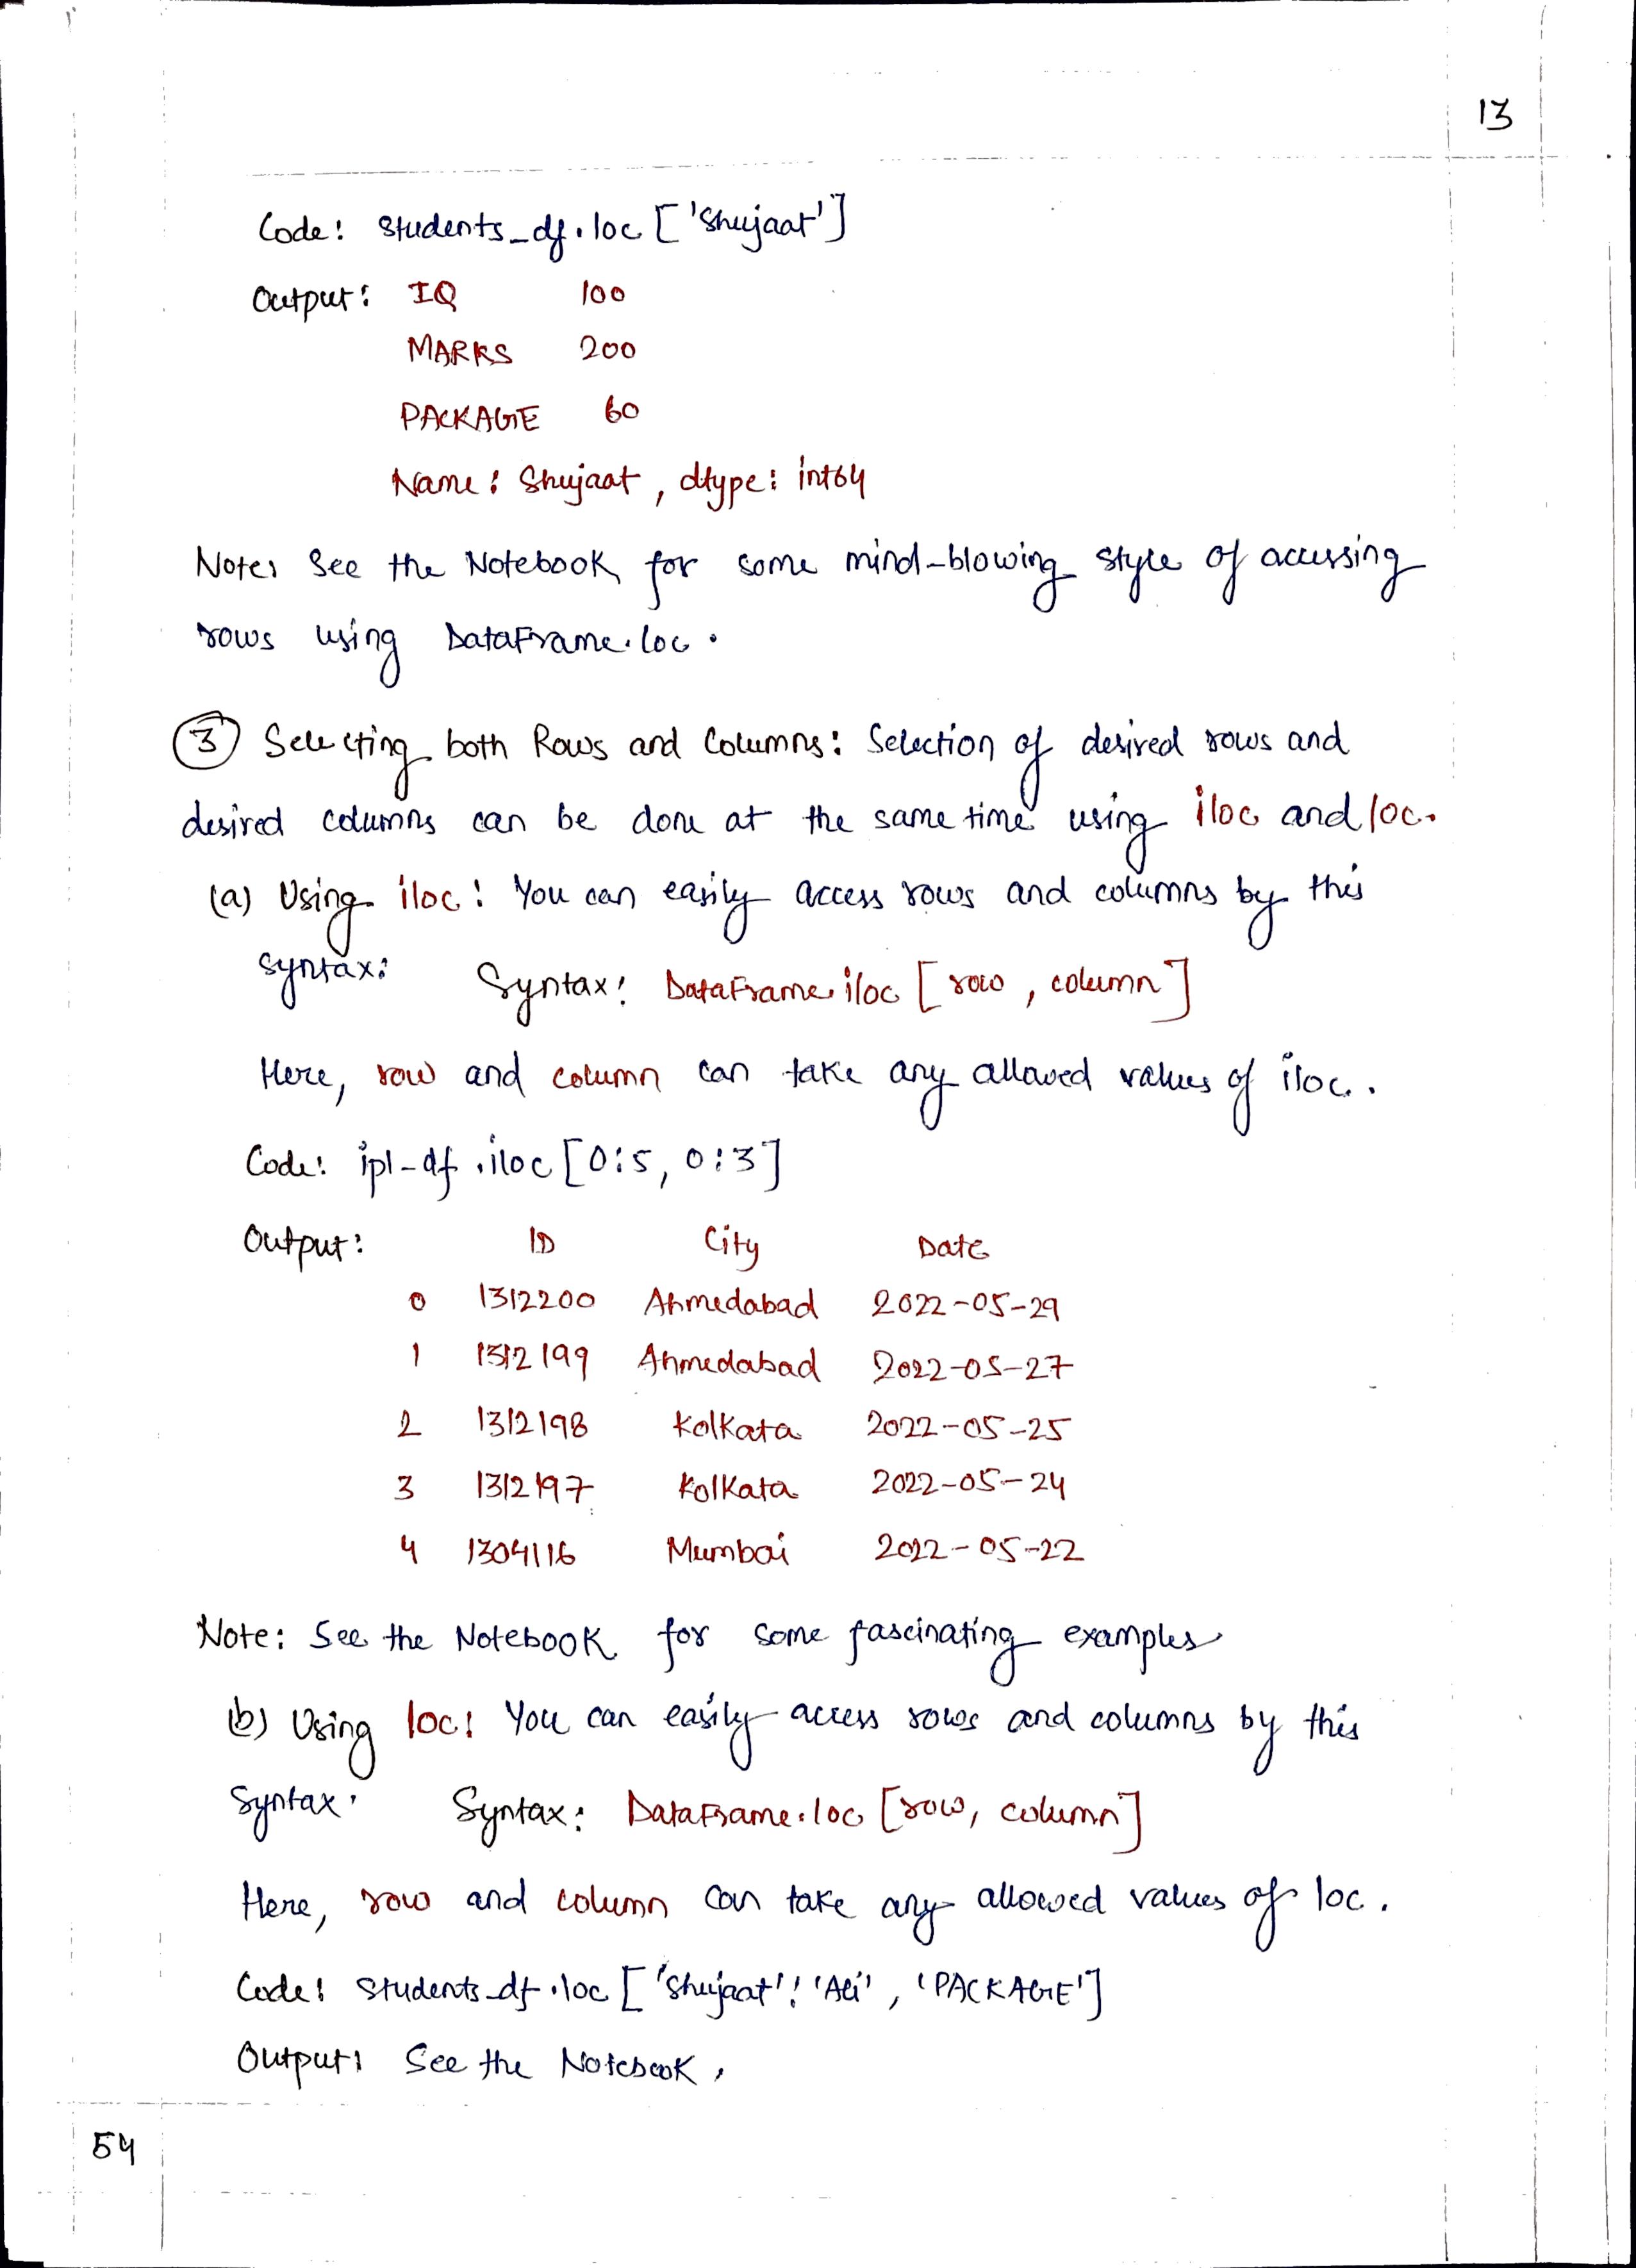 13
Code: students_df.loc['Shujaat']
Output: IQ 100
MARKS 200
PACKAGE 60
Name: Shujaat, dtype: int64
Note: See the Notebook for some mind-blowing style of accessing
rows using DataFrame.loc.
③ Selecting both Rows and Columns: Selection of desired rows and
desired columns can be done at the same time using iloc and loc.
(a) Using iloc: You can easily access rows and columns by this
syntax: Syntax: DataFrame.iloc[row, column]
Here, row and column can take any allowed values of iloc.
Code: ipl_df.iloc[0:5, 0:3]
Output: ID City Date
0 1312200 Ahmedabad 2022-05-29
1 1312199 Ahmedabad 2022-05-27
2 1312198 Kolkata 2022-05-25
3 1312197 Kolkata 2022-05-24
4 1304116 Mumbai 2022-05-22
Note: See the Notebook for some fascinating examples
(b) Using loc: You can easily access rows and columns by this
Syntax: Syntax: DataFrame.loc[row, column]
Here, row and column can take any allowed values of loc.
Code: students_df.loc['Shujaat':'Ali', 'PACKAGE']
Output: See the Notebook.
54